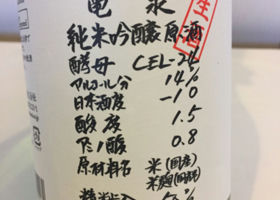 亀泉
生酒
純米吟醸原酒
酵母 CEL-24
アルコール分 14%
日本酒度 -10
酸度 1.5
アミノ酸 0.8
原材料名 米(国産)
米麹(国産米)
精米歩合